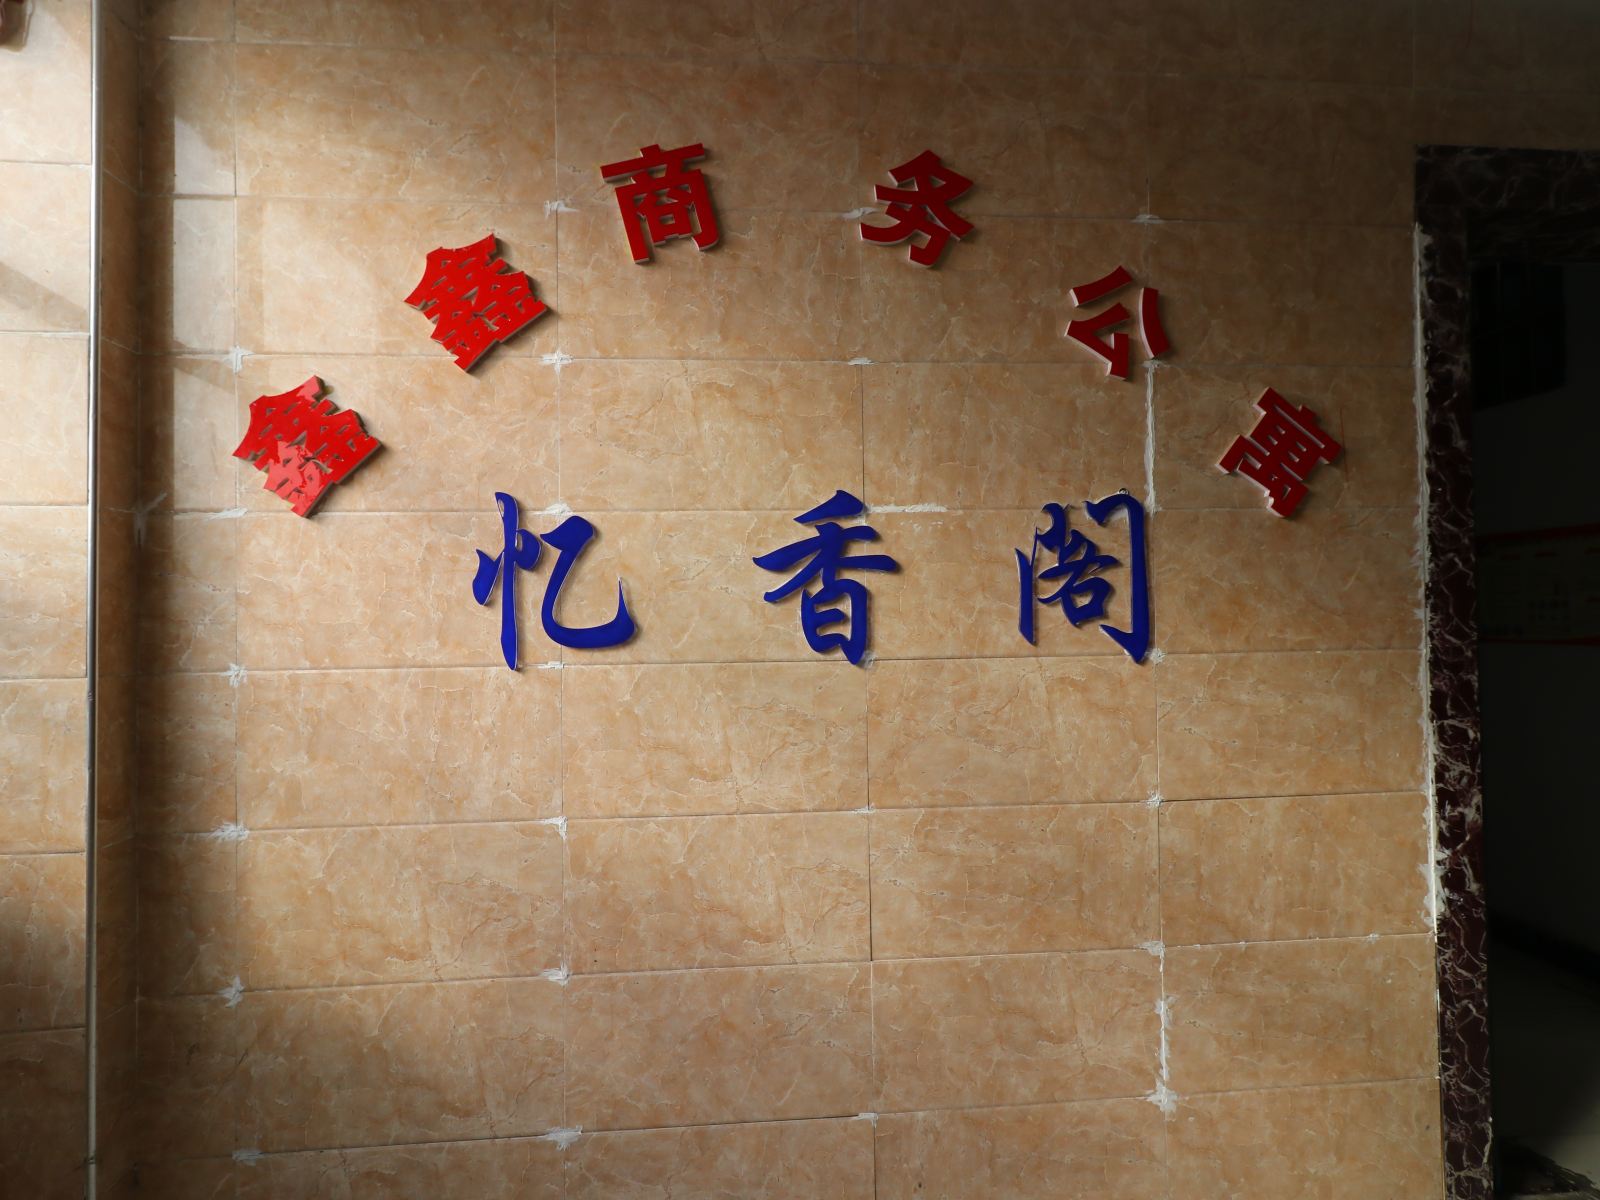 鑫鑫商务公寓
忆香阁